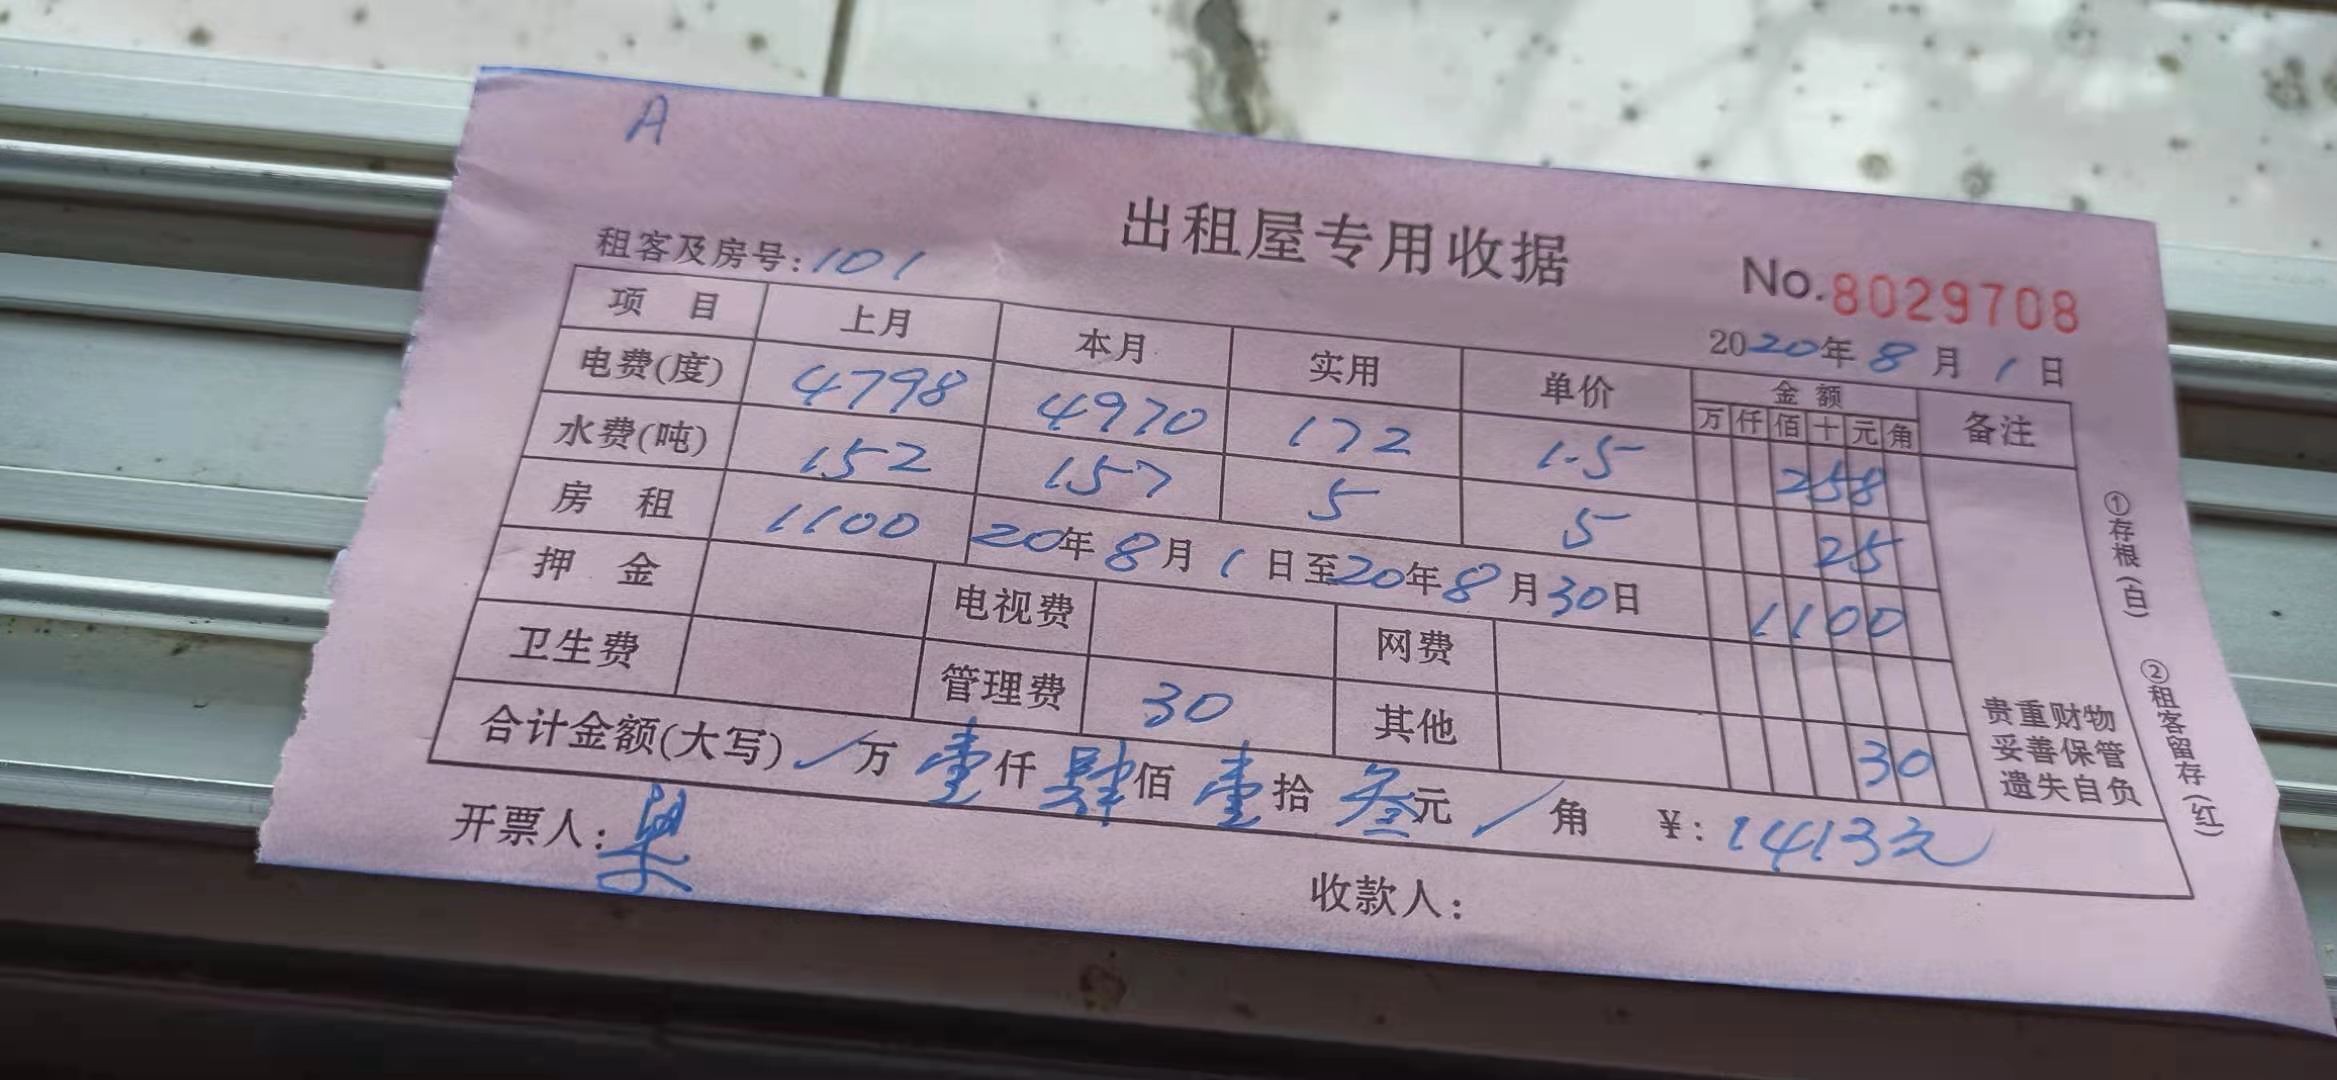 A
出租屋专用收据
租客及房号:101
No.8029708
2020年8月1日
项目 上月 本月 实用 单价 金额 备注
万仟佰十元角
电费(度) 4798 4970 172 1.5 258
水费(吨) 152 157 5 5 25
房租 1100 20年8月1日至20年8月30日 1100
押金 电视费 网费
卫生费 管理费 30 其他 30
贵重财物
妥善保管
遗失自负
合计金额(大写) /万壹仟肆佰壹拾叁元/角 ¥:1413元
开票人:梁
收款人:
①存根(白)
②租客留存(红)